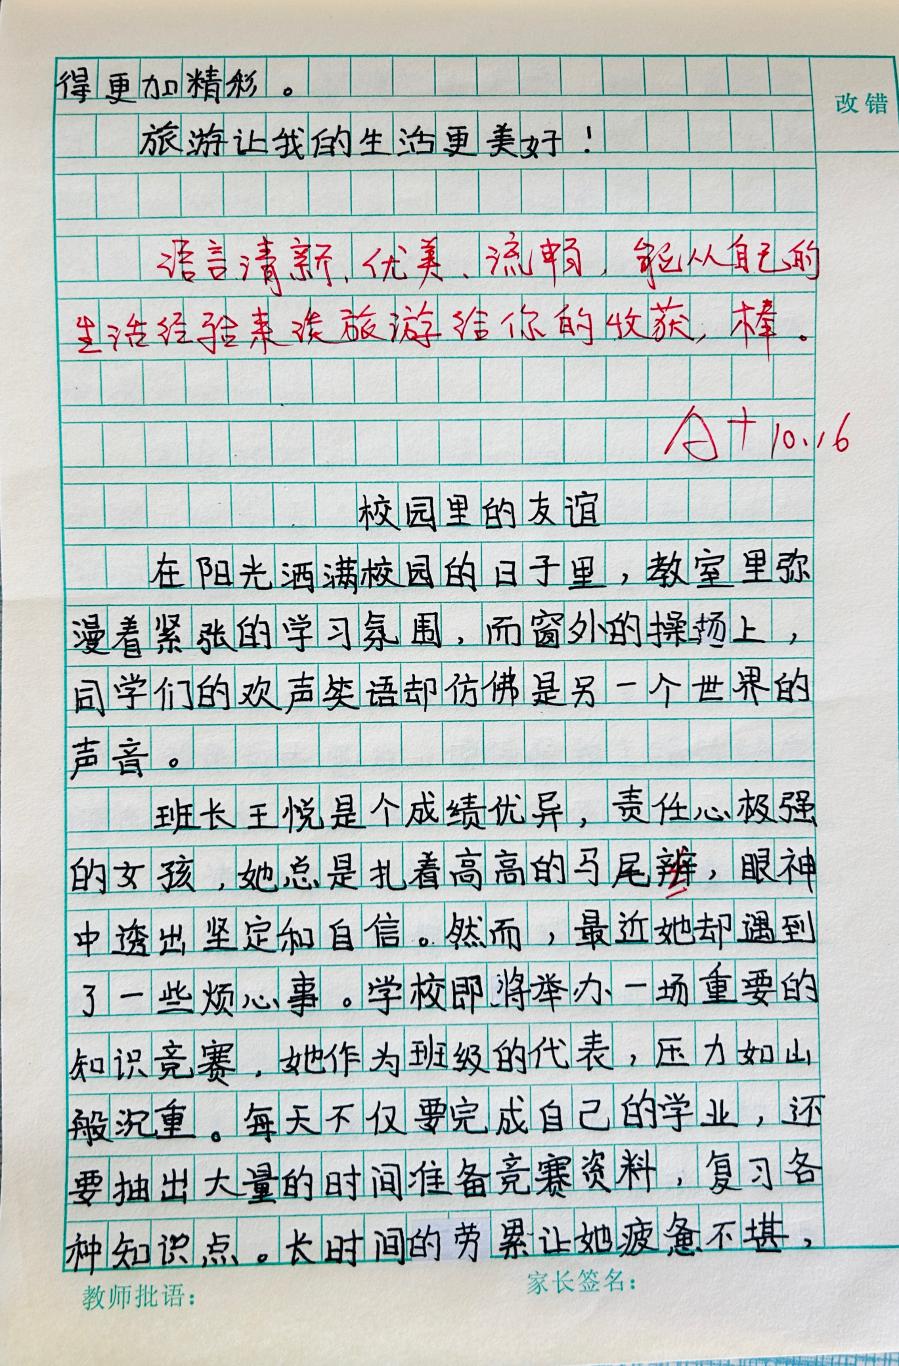 得更加精彩。
改错
旅游让我的生活更美好！
语言清新、优美、流畅，能从自己的
生活经验来谈旅游给你的收获，棒。
A+ 10.16
校园里的友谊
在阳光洒满校园的日子里，教室里弥
漫着紧张的学习氛围，而窗外的操场上，
同学们的欢声笑语却仿佛是另一个世界的
声音。
班长王悦是个成绩优异，责任心极强
的女孩，她总是扎着高高的马尾辫，眼神
中透出坚定和自信。然而，最近她却遇到
了一些烦心事。学校即将举办一场重要的
知识竞赛，她作为班级的代表，压力如山
般沉重。每天不仅要完成自己的学业，还
要抽出大量的时间准备竞赛资料，复习各
种知识点。长时间的劳累让她疲惫不堪，
教师批语：
家长签名：